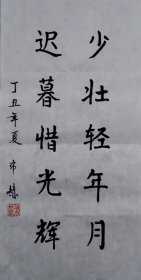 少壮轻年月
迟暮惜光辉
丁丑年夏